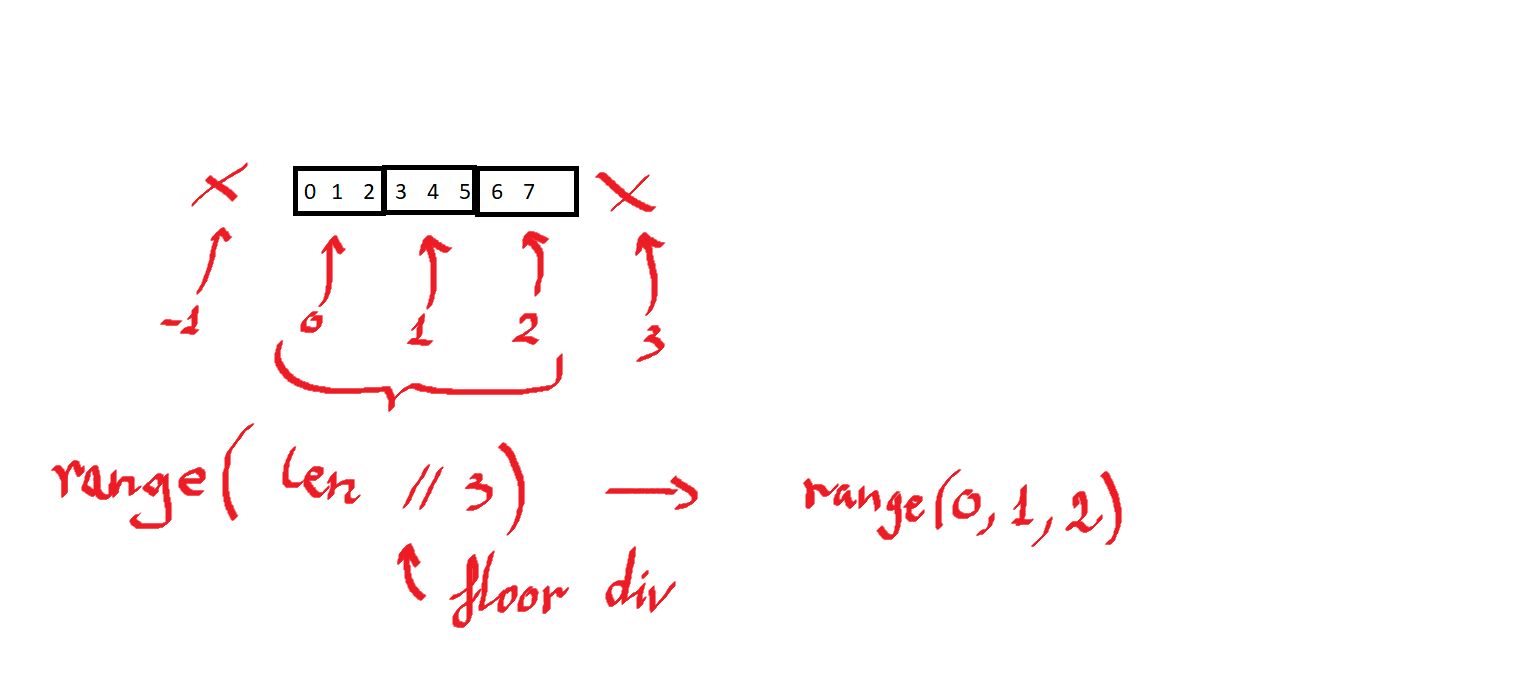 0 1 2 3 4 5 6 7
-1 0 1 2 3
range( len // 3) → range(0, 1, 2)
floor div